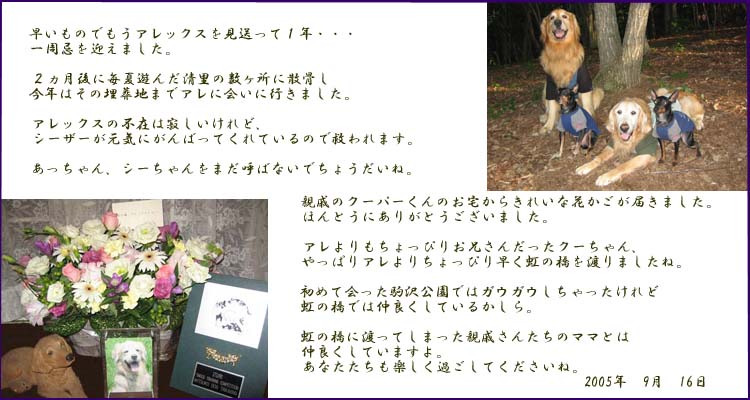 早いものでもうアレックスを見送って１年・・・
一周忌を迎えました。
２ヵ月後に毎夏遊んだ清里の数ヶ所に散骨し
今年はその埋葬地までアレに会いに行きました。
アレックスの不在は寂しいけれど、
シーザーが元気にがんばってくれているので救われます。
あっちゃん、シーちゃんをまだ呼ばないでちょうだいね。
親戚のクーパーくんのお宅からきれいな花かごが届きました。
ほんとうにありがとうございました。
アレよりもちょっぴりお兄さんだったクーちゃん、
やっぱりアレよりちょっぴり早く虹の橋を渡りましたね。
初めて会った駒沢公園ではガウガウしちゃったけれど
虹の橋では仲良くしているかしら。
虹の橋に渡ってしまった親戚さんたちのママとは
仲良くしていますよ。
あなたたちも楽しく過ごしてくださいね。
2005年　9月　16日